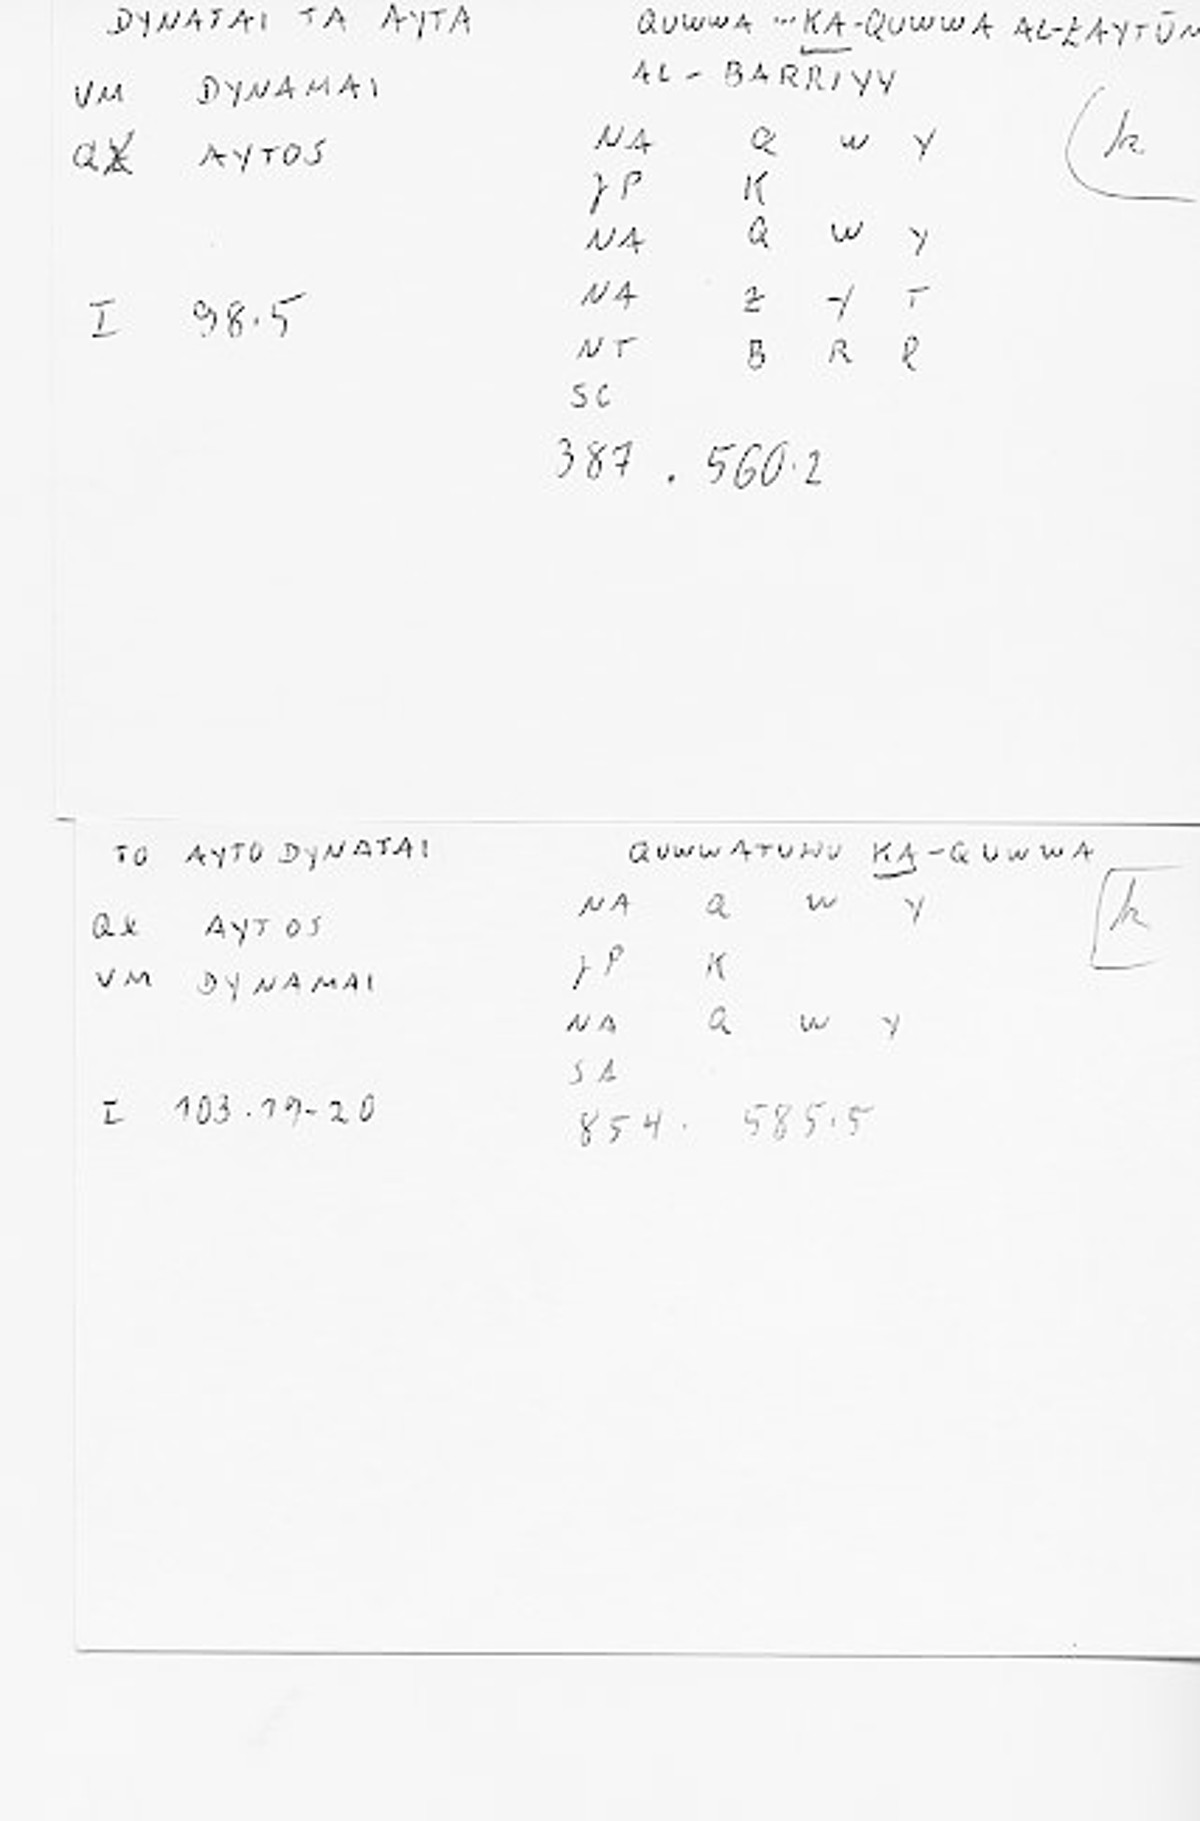 DYNATAI TA AYTA
QUWWA ···KA-QUWWA AL-ZAYTŪN
AL-BARRIYY
VM DYNAMAI
AYTOS
NA Q W Y
k
γP K
NA Q W Y
I 98.5
NA Z Y T
NT B R R
SC
387 . 560.2
TO AYTO DYNATAI
QUWWATUHU KA-QUWWA
NA Q W Y
k
QX AYTOS
γP K
VM DYNAMAI
NA Q W Y
SA
I 103.19-20
854. 585.5